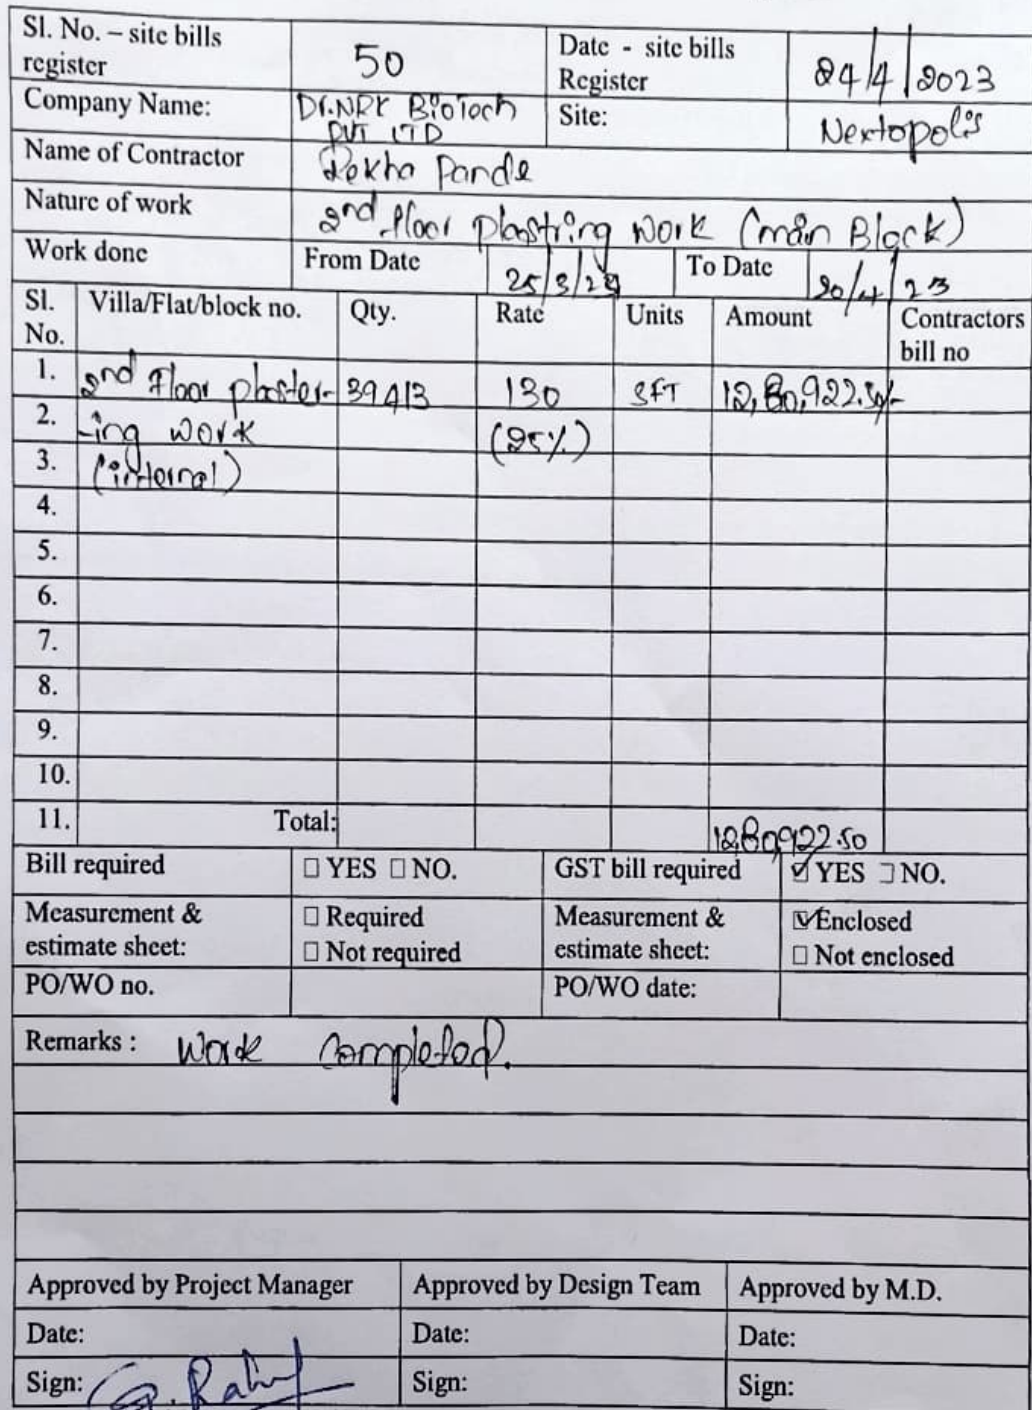 Sl. No. – site bills register 50 Date - site bills Register 24/4/2023
Company Name: Dr.NRK BioTech PVT LTD Site: Nextopolis
Name of Contractor Rekha Pande
Nature of work 2nd floor plastring work (main Block)
Work done From Date 25/3/23 To Date 20/4/23
Sl. No. Villa/Flat/block no. Qty. Rate Units Amount Contractors bill no
1. 2nd Floor plaster- 39413 130 SFT 12,80,922.50/-
2. -ing work (25%)
3. (internal)
4.
5.
6.
7.
8.
9.
10.
11. Total: 12,80,922.50
Bill required ☐ YES ☐ NO. GST bill required ☑ YES ☐ NO.
Measurement & estimate sheet: ☐ Required ☐ Not required Measurement & estimate sheet: ☑ Enclosed ☐ Not enclosed
PO/WO no. PO/WO date:
Remarks : Work Completed.
Approved by Project Manager Approved by Design Team Approved by M.D.
Date: Date: Date:
Sign: Sign: Sign: